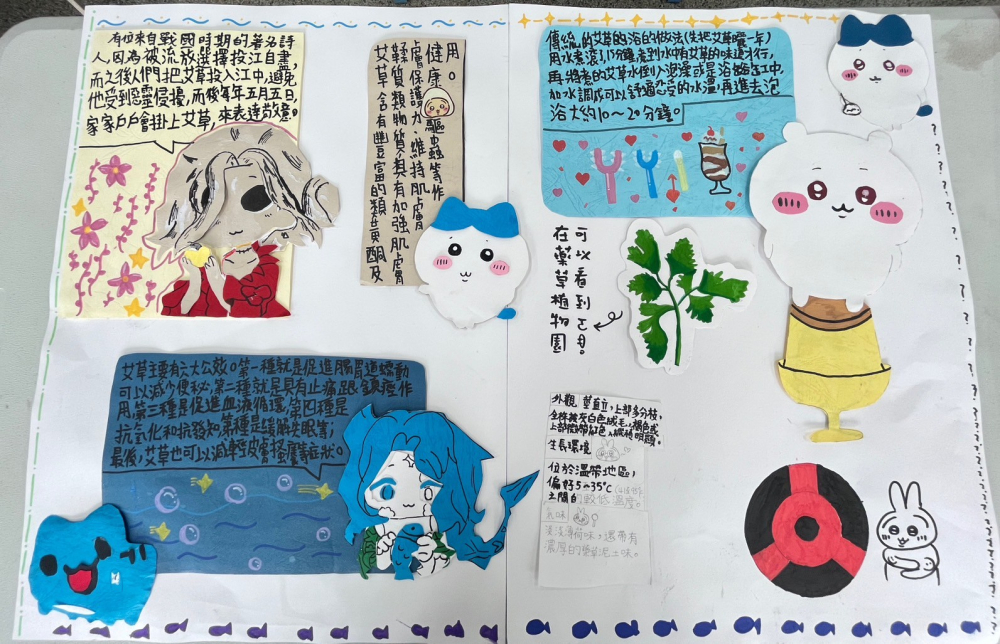 有位來自戰國時期的著名詩
人,因為被流放選擇投江自盡,
而之後人們把艾草投入江中,避免
他受到惡靈侵擾,而後每年五月五日,
家家戶戶會掛上艾草,來表達敬意。
艾草含有豐富的類黃酮及
鞣質類物質,具有加強肌膚
膚保護力、維持肌膚
健康、驅蟲等作
用。
傳統的艾草的浴的做法(先把艾草曬一年)
用水煮滾,15分鐘,煮到水中有艾草的味道才行,
再將煮的艾草水倒入泡澡或是浴缸中
加水調成可以舒適您的水溫,再進去泡
浴大約10~20分鐘。
可以看到它。
在藥草植物園
艾草主要有六大公效。第一種就是促進腸胃道蠕動
可以減少便秘,第二種就是具有止痛跟鎮痙作
用,第三種是促進血液循環,第四種是
抗氧化和抗發炎,第五種是緩解失眠等,
最後,艾草也可以減輕皮膚搔癢等症狀。
外觀 莖直立,上部多分枝,
全株被灰白色絨毛,褐色或
上部微帶紅色,縱稜明顯。
生長環境
位於溫帶地區,
偏好5~35°C
之間的較低溫度。
氣味
淡淡薄荷味。還帶有
濃厚的藥草泥土味。